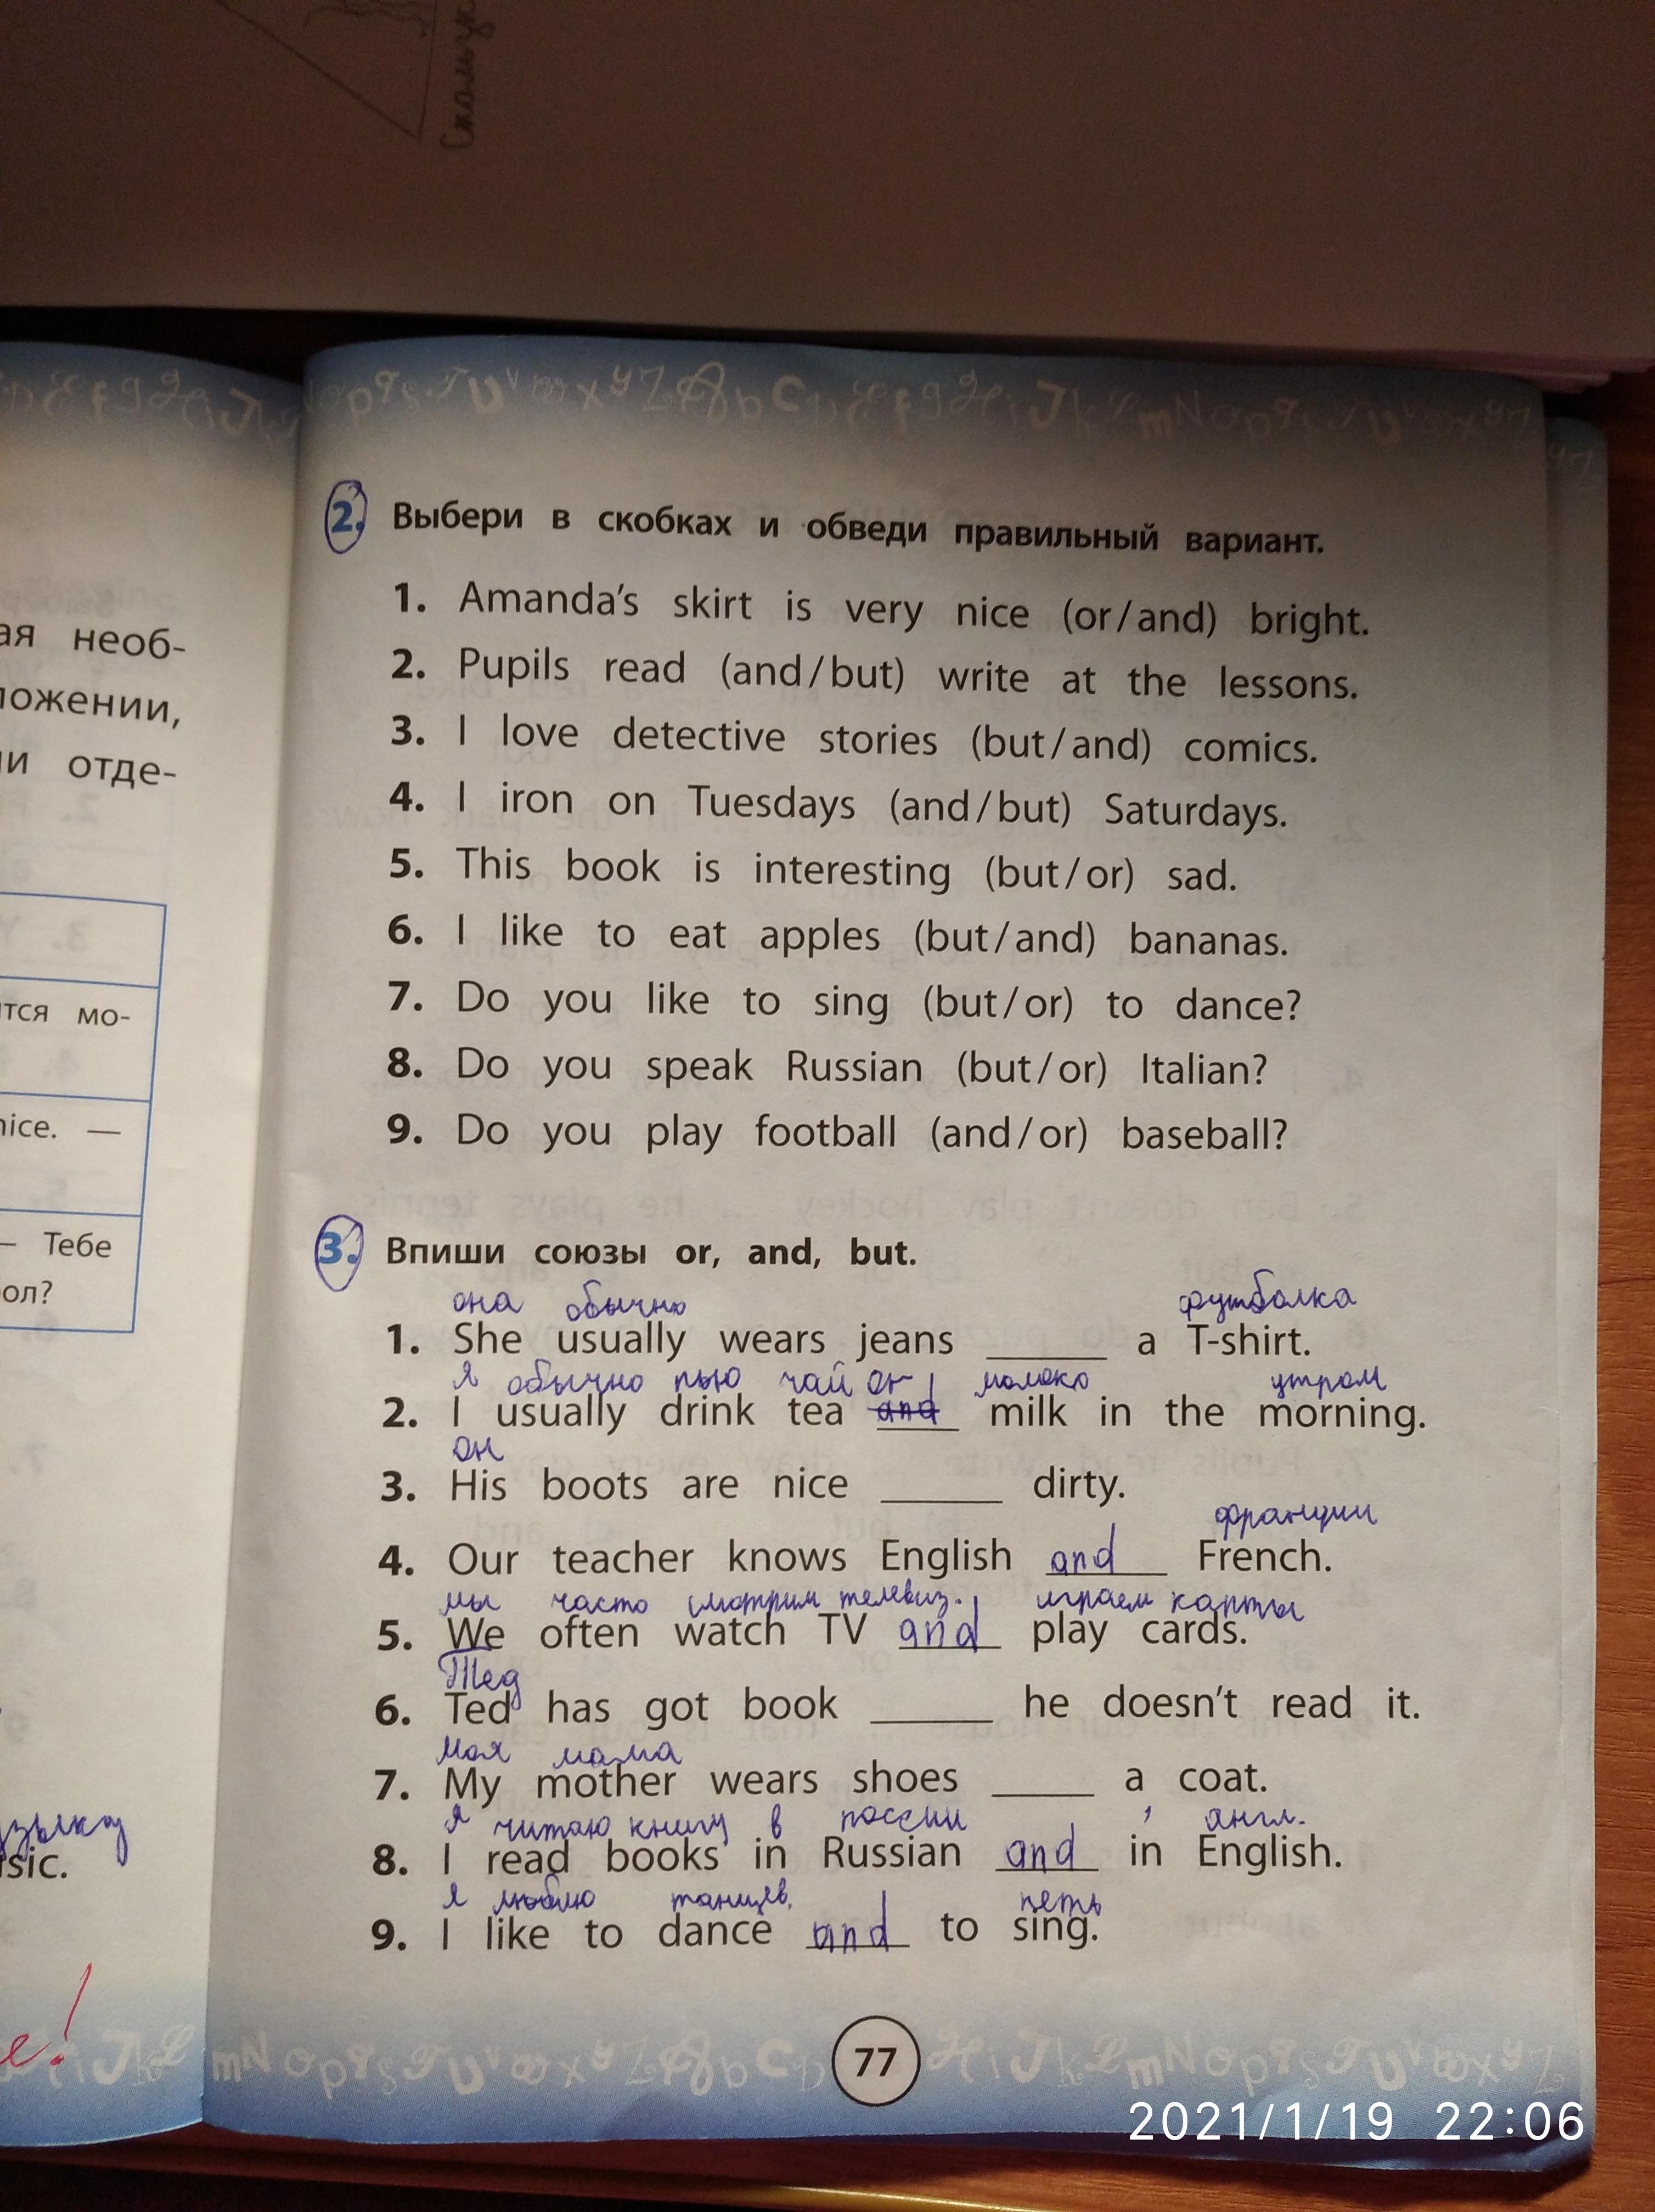 Скользк
ая необ-
ложении,
ли отде-
ится мо-
nice. —
— Тебе
ол?
узыку
usic.
е!
2. Выбери в скобках и обведи правильный вариант.
1. Amanda's skirt is very nice (or/and) bright.
2. Pupils read (and/but) write at the lessons.
3. I love detective stories (but/and) comics.
4. I iron on Tuesdays (and/but) Saturdays.
5. This book is interesting (but/or) sad.
6. I like to eat apples (but/and) bananas.
7. Do you like to sing (but/or) to dance?
8. Do you speak Russian (but/or) Italian?
9. Do you play football (and/or) baseball?
3. Впиши союзы or, and, but.
она обычно футболка
1. She usually wears jeans ______ a T-shirt.
я обычно пью чай or молоко утром
2. I usually drink tea and milk in the morning.
он
3. His boots are nice ______ dirty.
франции
4. Our teacher knows English and French.
мы часто смотрим телевиз. играем карты
5. We often watch TV and play cards.
Тед
6. Ted has got book ______ he doesn't read it.
Моя мама
7. My mother wears shoes _____ a coat.
я читаю книгу в россии , англ.
8. I read books in Russian and in English.
я люблю танцев. петь
9. I like to dance and to sing.
77
2021/1/19 22:06